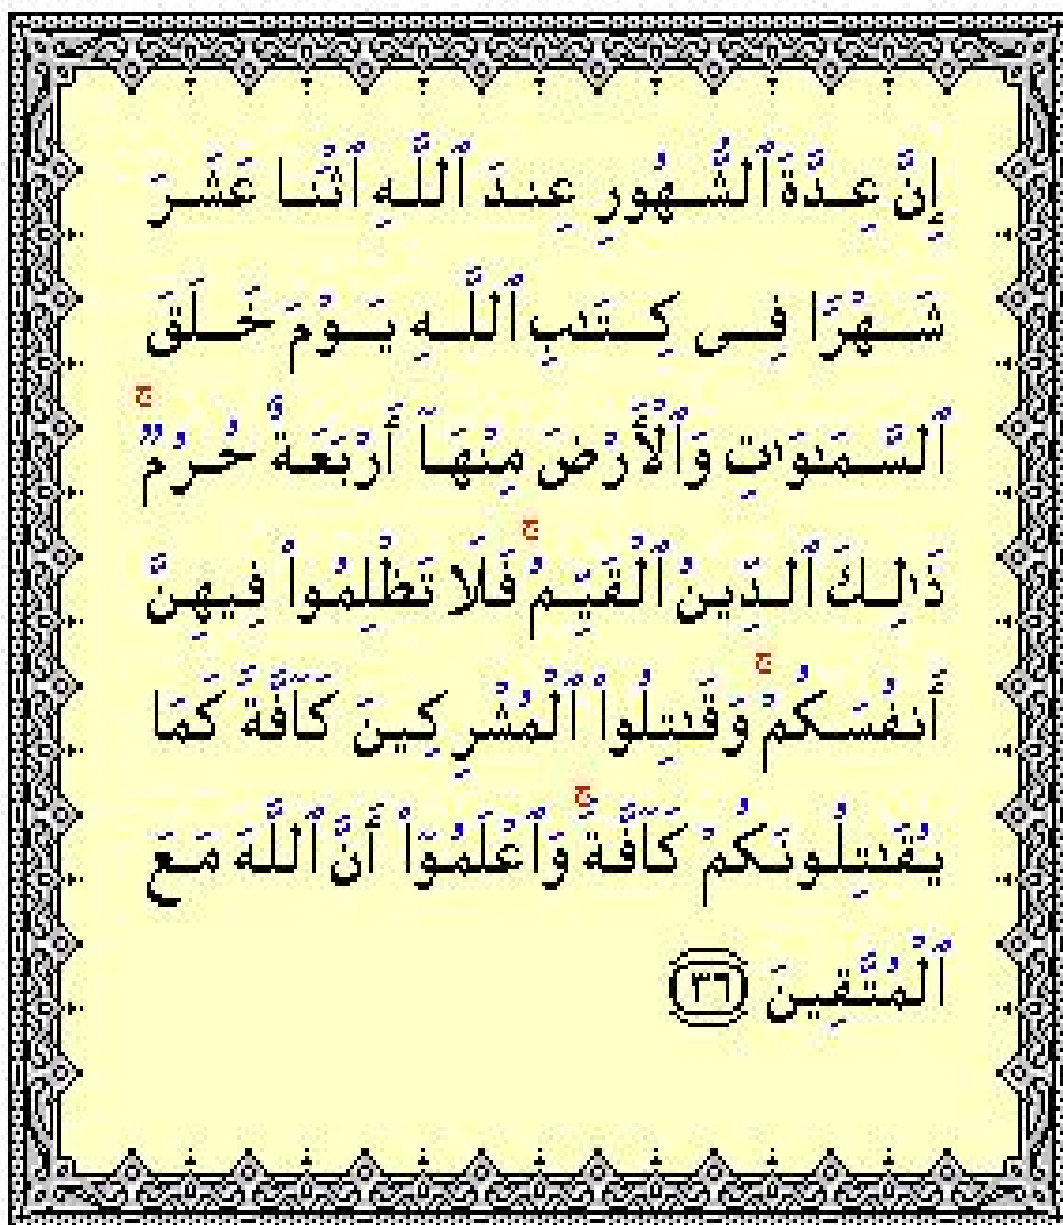 إِنَّ عِدَّةَ ٱلشُّهُورِ عِندَ ٱللَّهِ ٱثْنَا عَشَرَ
شَهْرًا فِى كِتَٰبِ ٱللَّهِ يَوْمَ خَلَقَ
ٱلسَّمَٰوَٰتِ وَٱلْأَرْضَ مِنْهَآ أَرْبَعَةٌ حُرُمٌ ۚ
ذَٰلِكَ ٱلدِّينُ ٱلْقَيِّمُ ۚ فَلَا تَظْلِمُوا۟ فِيهِنَّ
أَنفُسَكُمْ ۚ وَقَٰتِلُوا۟ ٱلْمُشْرِكِينَ كَآفَّةً كَمَا
يُقَٰتِلُونَكُمْ كَآفَّةً ۚ وَٱعْلَمُوٓا۟ أَنَّ ٱللَّهَ مَعَ
ٱلْمُتَّقِينَ ٣٦